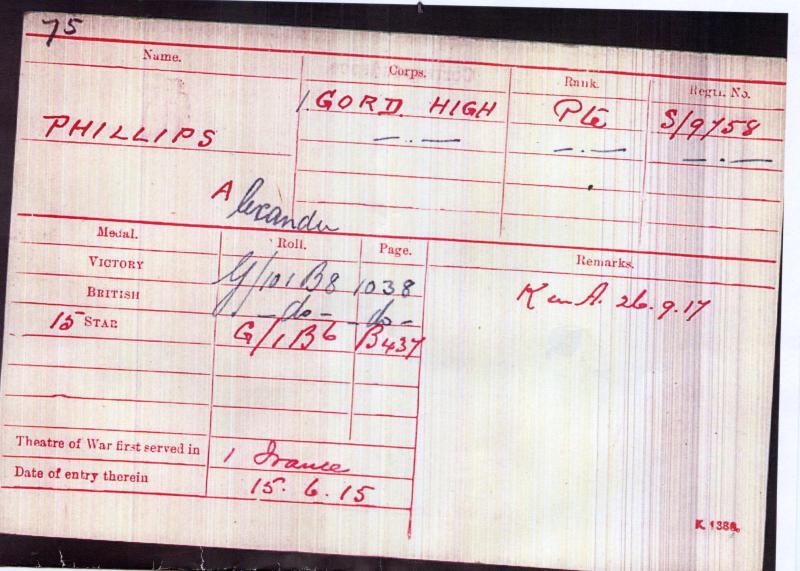 75
Name. Corps. Rank. Regtl. No.
PHILLIPS 1. GORD. HIGH Pte S/9758
— . — — . — — . —
Alexander
Medal. Roll. Page. Remarks.
VICTORY G/101 B8 1038
BRITISH — do — — do —
15 STAR G/1 B6 B437
K in A. 26.9.17
Theatre of War first served in 1 France
Date of entry therein 15.6.15
K 1380.